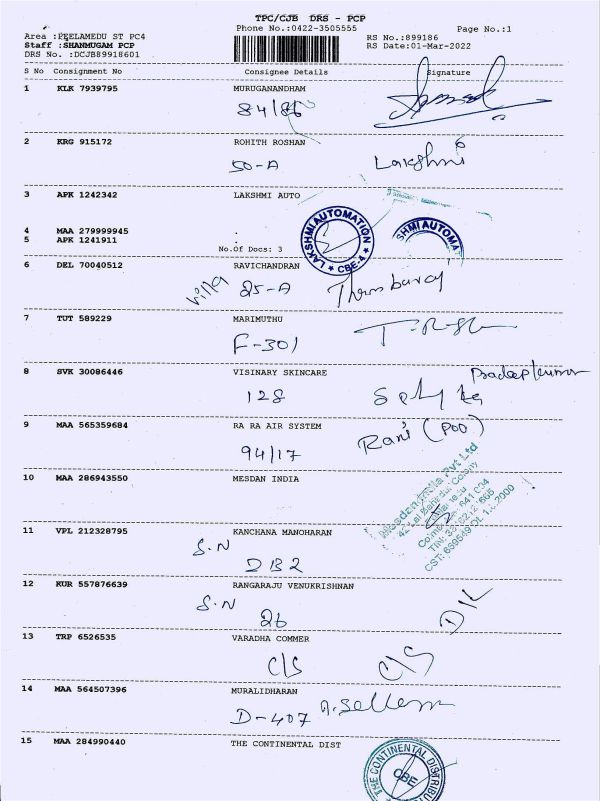 TPC/CJB DRS - PCP
Area :PEELAMEDU ST PC4 Phone No.:0422-3505555 Page No.:1
Staff :SHANMUGAM PCP RS No.:899186
DRS No. :DCJB89918601 RS Date:01-Mar-2022
S No Consignment No Consignee Details Signature
1 KLK 7939795 MURUGANANDHAM
84/86
2 KRG 915172 ROHITH ROSHAN
50-A Lakshmi
3 APK 1242342 LAKSHMI AUTO
LAKSHMI AUTOMATION * CBE-4 * SHMI AUTOMAT
4 MAA 279999945 .
5 APK 1241911
No.Of Docs: 3
6 DEL 70040512 RAVICHANDRAN
villa 25-A
7 TUT 589229 MARIMUTHU
F-301
8 SVK 30086446 VISINARY SKINCARE Pradeepkumar
128
9 MAA 565359684 RA RA AIR SYSTEM
94/17 Rani (POD)
10 MAA 286943550 MESDAN INDIA
Mesdan India Pvt Ltd
42 Lal Bahadur Colony
11 VPL 212328795 KANCHANA MANOHARAN
S.N DB2
12 KUR 557876639 RANGARAJU VENUKRISHNAN
S.N 26
13 TRP 6526535 VARADHA COMMER
C/S C/S
14 MAA 564507396 MURALIDHARAN
D-407
15 MAA 284990440 THE CONTINENTAL DIST
THE CONTINENTAL DISTRIBUT CBE